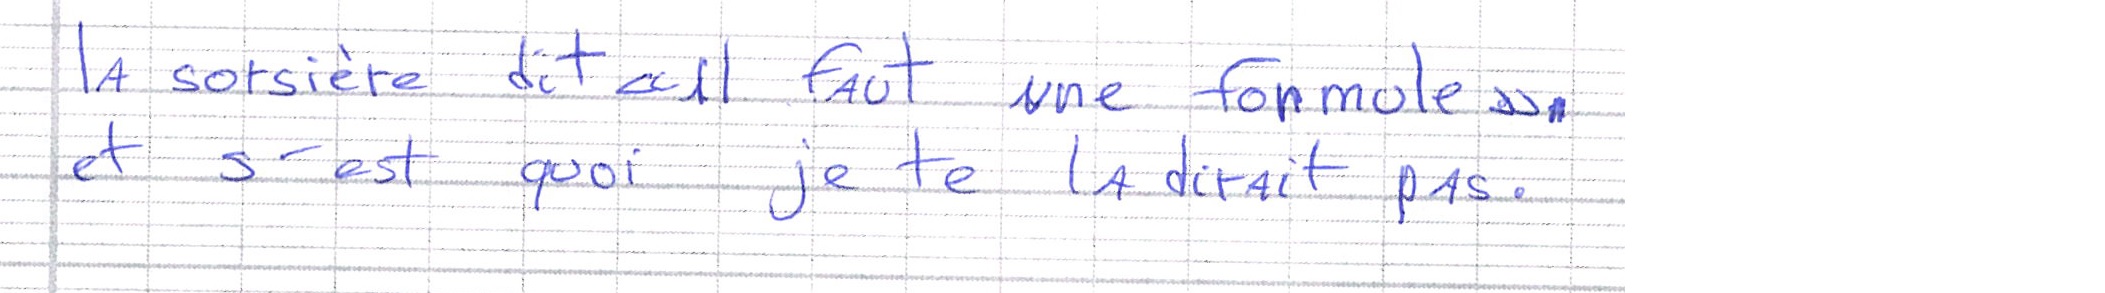 lA sorsière dit «Il fAut une formule »
et s-est quoi je te lA dirAit pAs.